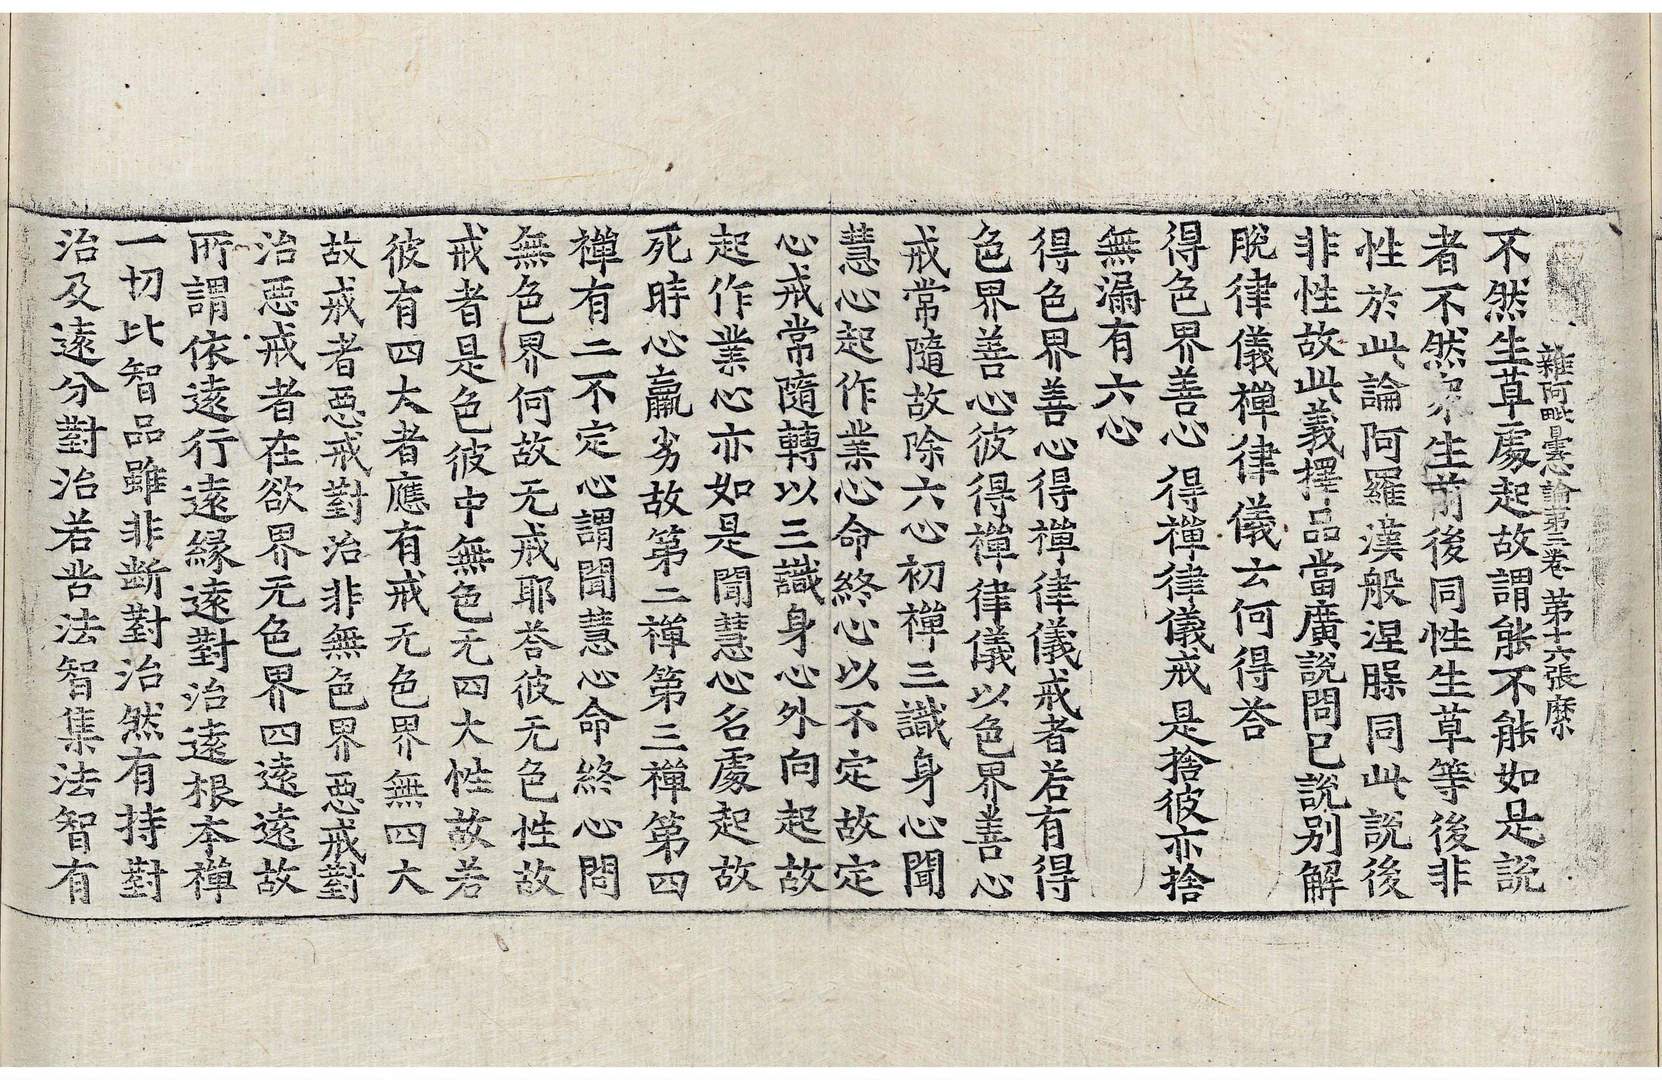 雜阿毗曇心論第三卷 第十六張 縻
不然生草處起故謂能不能如是説
者不然 不生前後同性生草等後非
性於此論阿羅漢般涅槃同此説後
非性故此義擇品當廣説問已説別解
脫律儀禪律儀云何得荅
得色界善心 得禪律儀戒 是捨彼亦捨
無漏有六心
得色界善心得禪律儀戒者若有得
色界善心彼得禪律儀以色界善心
戒常隨故除六心初禪三識身心聞
慧心起作業心命終心以不定故定
心戒常隨轉以三識身心外向起故
起作業心亦如是聞慧心名處起故
死時心羸劣故第二禪第三禪第四
禪有二不定心謂聞慧心命終心問
無色界何故无戒耶荅彼无色性故
戒者是色彼中無色无四大性故若
彼有四大者應有戒无色界無四大
故戒者惡戒對治非無色界惡戒對
治惡戒者在欲界无色界四遠遠故
所謂依遠行遠緣遠對治遠根本禪
一切比智品雖非斷對治然有持對
治及遠分對治若苦法智集法智有